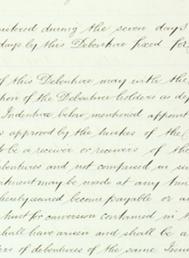 istered during the seven days
days by this Debenture fixed for
of this Debenture may with the
of the Debenture holders as de
Indenture before mentioned appoint
approved by the trustees of the
to be a receiver or receivers of the
debentures and not comprised in su
may be made at any time
secured become payable or a
for conversion contained in t
shall have arisen and shall be a
of debentures of the same Issue